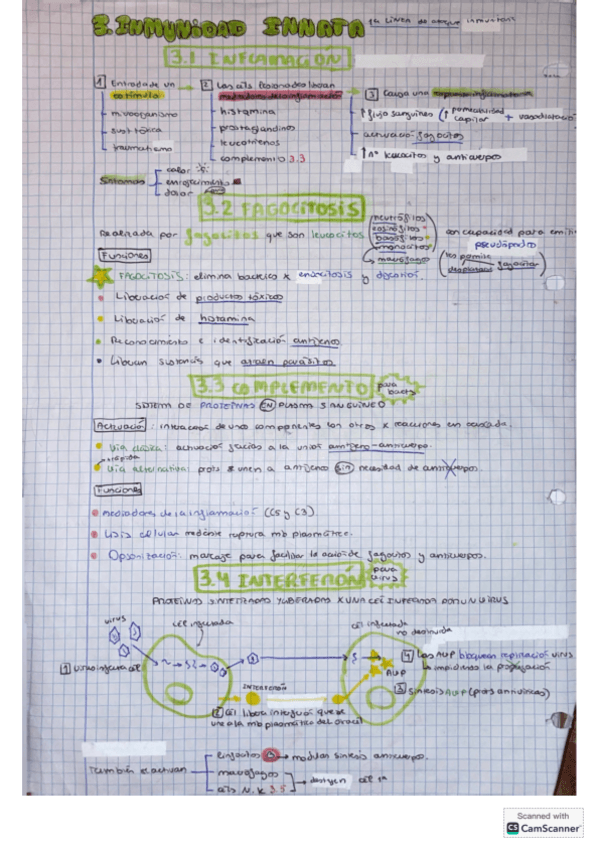 3. INMUNIDAD INNATA 1a LÍNEA de ataque inmunitario
3.1 INFLAMACIÓN
1 Entrada de un estímulo
microorganismo
sust tóxica
traumatismo
2 Las cels lesionadas liberan mediadores de la inflamación
histamina
prostaglandinas
leucotrienos
complemento 3.3
3 Causa una respuesta inflamatoria
↑ flujo sanguíneo (↑ permeabilidad capilar + vasodilatación
activación fagocitos
↑ nº leucocitos y anticuerpos
Síntomas
calor
enrojecimiento
dolor
3.2 FAGOCITOSIS
Realizada por fagocitos que son leucocitos
neutrófilos
eosinófilos
basófilos
monocitos
→ macrófagos
con capacidad para emitir pseudópodos
Funciones
FAGOCITOSIS: elimina bacterias x endocitosis y
Liberación de productos tóxicos
Liberación de histamina
Reconocimiento e identificación antígenos
Liberan sustancias que atraen parásitos
3.3 COMPLEMENTO para bacts
SISTEMA DE PROTEÍNAS EN PLASMA SANGUÍNEO
Activación: interacción de unos componentes con otros x reacciones en cascada.
Vía clásica: activación gracias a la unión antígeno-anticuerpo.
+ rápida
Vía alternativa: prots se unen a antígeno sin necesidad de anticuerpos.
Funciones
Mediadores de la inflamación (C5 y C3)
Lisis celular mediante ruptura mb plasmática.
Opsonización: marcaje para facilitar la acción de fagocitos y anticuerpos.
3.4 INTERFERÓN para virus
PROTEÍNAS SINTETIZADAS Y LIBERADAS X UNA CÉL INFECTADA POR UN VIRUS
virus
cél infectada
cél infectada no destruida
1 Virus infecta cél
INTERFERÓN
2 Cél libera interferón que se une a la mb plasmática de otra cél
AVP
4 Las AVP bloquean replicación virus
↳ impidiendo la propagación
3 Síntesis AVP (prots antivíricas)
También se activan
linfocitos B → modulan síntesis anticuerpos.
macrófagos
cels N.K 3.5
→ destruyen